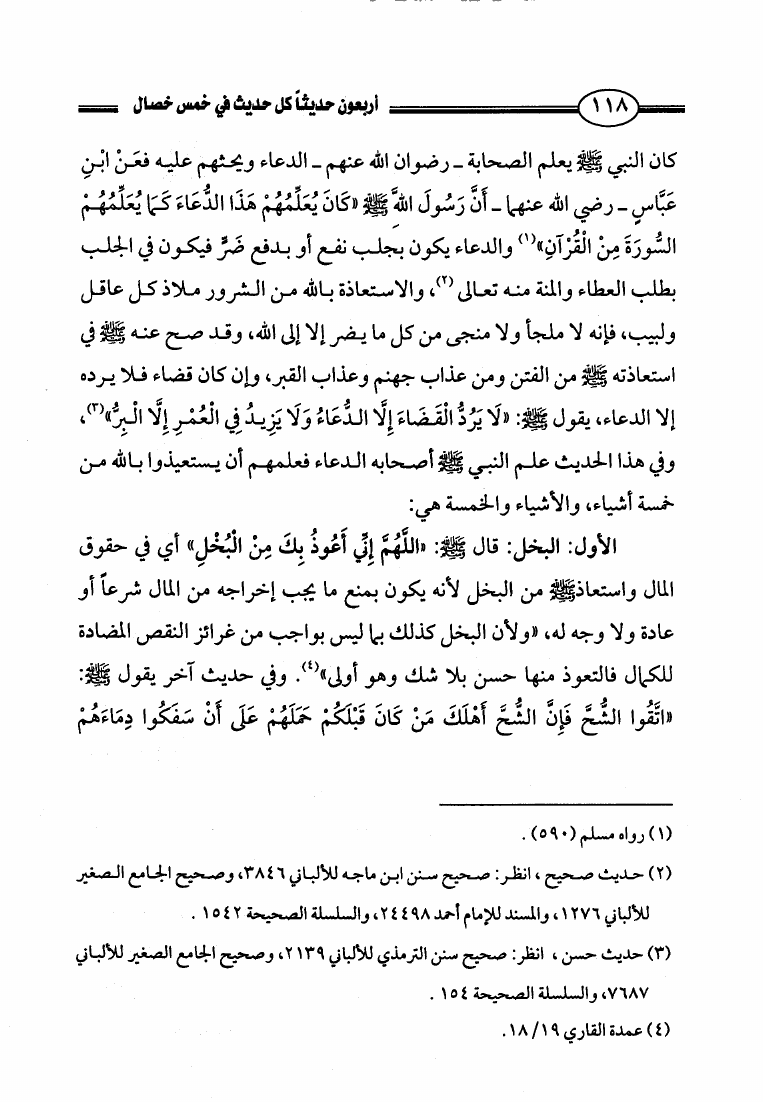 ١١٨
أربعون حديثاً كل حديث في خمس خصال
كان النبي ﷺ يعلم الصحابة ـ رضوان الله عنهم ـ الدعاء ويحثهم عليه فعَنْ ابْنِ
عَبَّاسٍ ـ رضي الله عنهما ـ أَنَّ رَسُولَ اللهَّ ﷺ «كَانَ يُعَلِّمُهُمْ هَذَا الدُّعَاءَ كَمَا يُعَلِّمُهُمْ
السُّورَةَ مِنْ الْقُرْآنِ»(١) والدعاء يكون بجلب نفع أو بدفع ضَرٍّ فيكون في الجلب
بطلب العطاء والمنة منه تعالى(٢)، والاستعاذة بالله من الشرور ملاذ كل عاقل
ولبيب، فإنه لا ملجأ ولا منجى من كل ما يضر إلا إلى الله، وقد صح عنه ﷺ في
استعاذته ﷺ من الفتن ومن عذاب جهنم وعذاب القبر، وإن كان قضاء فلا يرده
إلا الدعاء، يقول ﷺ: «لَا يَرُدُّ الْقَضَاءَ إِلَّا الدُّعَاءُ وَلَا يَزِيدُ فِي الْعُمْرِ إِلَّا الْبِرُّ»(٣)،
وفي هذا الحديث علم النبي ﷺ أصحابه الدعاء فعلمهم أن يستعيذوا بالله من
خمسة أشياء، والأشياء والخمسة هي:
الأول: البخل: قال ﷺ: «اللَّهُمَّ إِنِّي أَعُوذُ بِكَ مِنْ الْبُخْلِ» أي في حقوق
المال واستعاذﷺ من البخل لأنه يكون بمنع ما يجب إخراجه من المال شرعاً أو
عادة ولا وجه له، «ولأن البخل كذلك بما ليس بواجب من غرائز النقص المضادة
للكمال فالتعوذ منها حسن بلا شك وهو أولى»(٤). وفي حديث آخر يقول ﷺ:
«اتَّقُوا الشُّحَّ فَإِنَّ الشُّحَّ أَهْلَكَ مَنْ كَانَ قَبْلَكُمْ حَمَلَهُمْ عَلَى أَنْ سَفَكُوا دِمَاءَهُمْ
(١) رواه مسلم (٥٩٠) .
(٢) حديث صحيح ، انظر: صحيح سنن ابن ماجه للألباني ٣٨٤٦، وصحيح الجامع الصغير
للألباني ١٢٧٦، والمسند للإمام أحمد ٢٤٤٩٨، والسلسلة الصحيحة ١٥٤٢ .
(٣) حديث حسن ، انظر: صحيح سنن الترمذي للألباني ٢١٣٩، وصحيح الجامع الصغير للألباني
٧٦٨٧، والسلسلة الصحيحة ١٥٤ .
(٤) عمدة القاري ١٨/١٩.